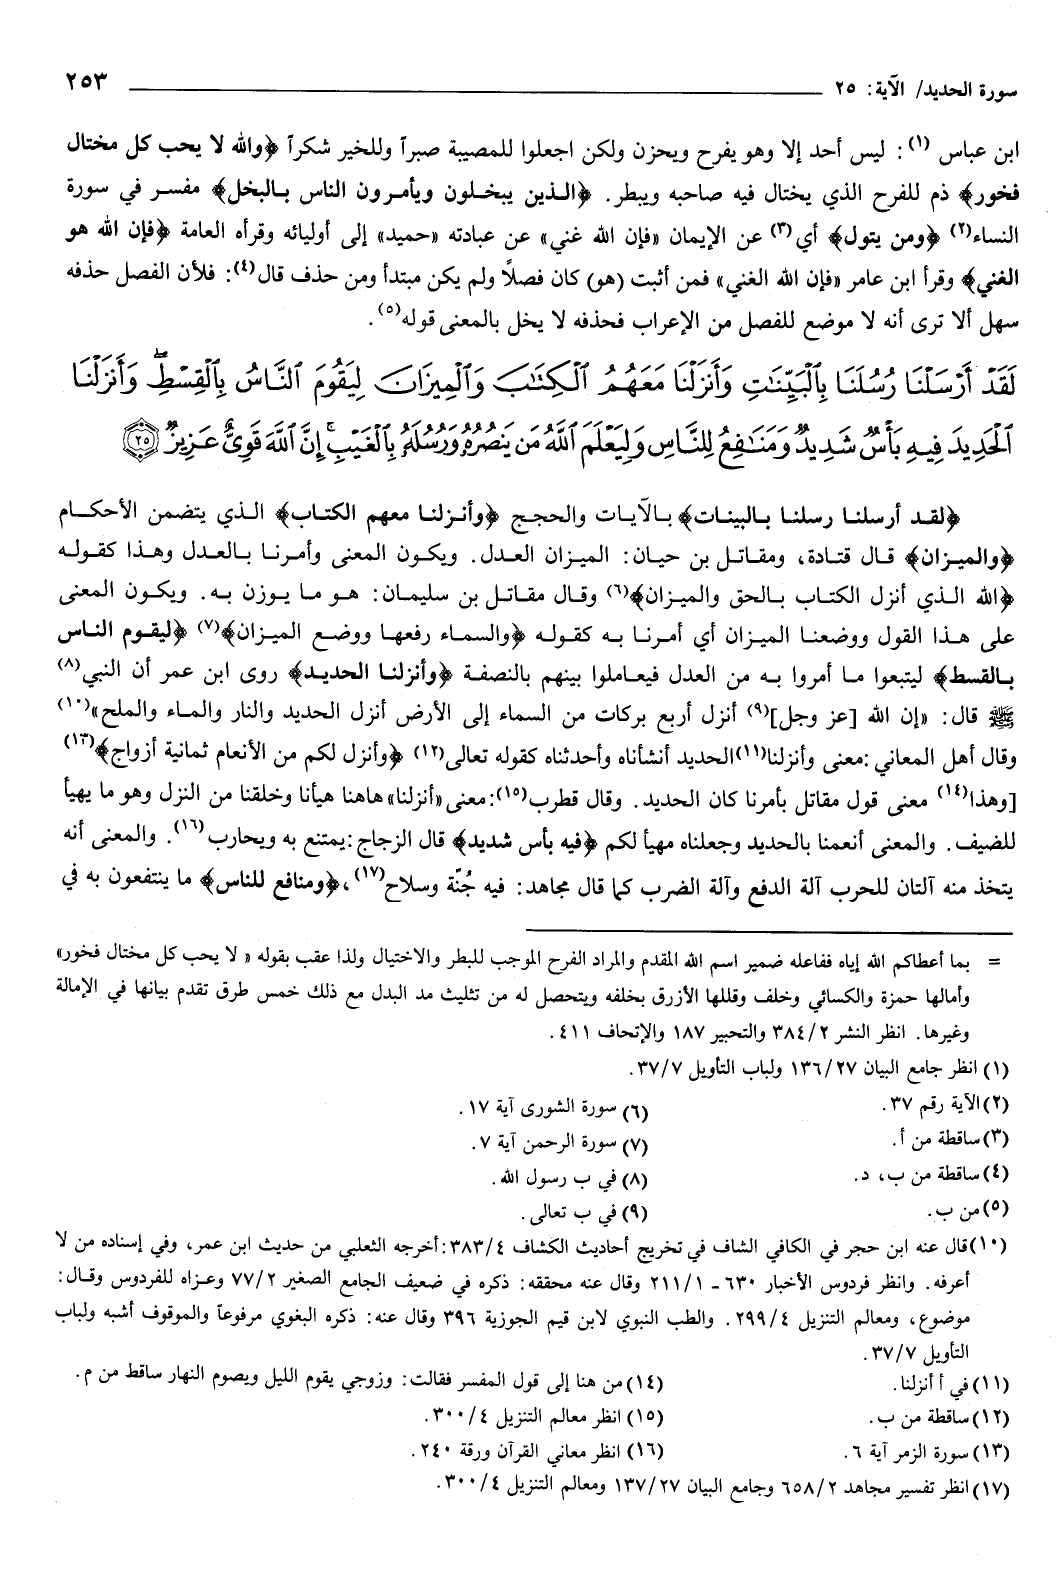 سورة الحديد/ الآية: ٢٥
٢٥٣
ابن عباس (١): ليس أحد إلا وهو يفرح ويحزن ولكن اجعلوا للمصيبة صبراً وللخير شكراً ﴿والله لا يحب كل مختال
فخور﴾ ذم للفرح الذي يختال فيه صاحبه ويبطر. ﴿الذين يبخلون ويأمرون الناس بالبخل﴾ مفسر في سورة
النساء(٢) ﴿ومن يتول﴾ أي(٣) عن الإيمان «فإن الله غني» عن عبادته «حميد» إلى أوليائه وقرأه العامة ﴿فإن الله هو
الغني﴾ وقرأ ابن عامر «فإن الله الغني» فمن أثبت (هو) كان فصلاً ولم يكن مبتدأ ومن حذف قال(٤): فلأن الفصل حذفه
سهل ألا ترى أنه لا موضع للفصل من الإعراب فحذفه لا يخل بالمعنى قوله(٥).
لَقَدْ أَرْسَلْنَا رُسُلَنَا بِالْبَيِّنَاتِ وَأَنزَلْنَا مَعَهُمُ ٱلْكِتَٰبَ وَٱلْمِيزَانَ لِيَقُومَ ٱلنَّاسُ بِالْقِسْطِۖ وَأَنزَلْنَا
ٱلْحَدِيدَ فِيهِ بَأْسٌ شَدِيدٌ وَمَنَٰفِعُ لِلنَّاسِ وَلِيَعْلَمَ ٱللَّهُ مَن يَنصُرُهُۥ وَرُسُلَهُۥ بِالْغَيْبِۚ إِنَّ ٱللَّهَ قَوِىٌّ عَزِيزٌ ٢٥
﴿لقد أرسلنا رسلنا بالبينات﴾ بالآيات والحجج ﴿وأنزلنا معهم الكتاب﴾ الذي يتضمن الأحكام
﴿والميزان﴾ قال قتادة، ومقاتل بن حيان: الميزان العدل. ويكون المعنى وأمرنا بالعدل وهذا كقوله
﴿الله الذي أنزل الكتاب بالحق والميزان﴾(٦) وقال مقاتل بن سليمان: هو ما يوزن به. ويكون المعنى
على هذا القول ووضعنا الميزان أي أمرنا به كقوله ﴿والسماء رفعها ووضع الميزان﴾(٧) ﴿ليقوم الناس
بالقسط﴾ ليتبعوا ما أمروا به من العدل فيعاملوا بينهم بالنصفة ﴿وأنزلنا الحديد﴾ روى ابن عمر أن النبي(٨)
ﷺ قال: «إن الله [عز وجل](٩) أنزل أربع بركات من السماء إلى الأرض أنزل الحديد والنار والماء والملح»(١٠)
وقال أهل المعاني :معنى وأنزلنا(١١)الحديد أنشأناه وأحدثناه كقوله تعالى(١٢) ﴿وأنزل لكم من الأنعام ثمانية أزواج﴾(١٣)
[وهذا(١٤) معنى قول مقاتل بأمرنا كان الحديد. وقال قطرب(١٥):معنى«أنزلنا»هاهنا هيأنا وخلقنا من النزل وهو ما يهيأ
للضيف. والمعنى أنعمنا بالحديد وجعلناه مهيأ لكم ﴿فيه بأس شديد﴾ قال الزجاج:يمتنع به ويحارب(١٦). والمعنى أنه
يتخذ منه آلتان للحرب آلة الدفع وآلة الضرب كما قال مجاهد: فيه جُنّة وسلاح(١٧)،﴿ومنافع للناس﴾ ما ينتفعون به في
= بما أعطاكم الله إياه ففاعله ضمير اسم الله المقدم والمراد الفرح الموجب للبطر والاختيال ولذا عقب بقوله « لا يحب كل مختال فخور»
وأمالها حمزة والكسائي وخلف وقللها الأزرق بخلفه ويتحصل له من تثليث مد البدل مع ذلك خمس طرق تقدم بيانها في الإمالة
وغيرها. انظر النشر ٣٨٤/٢ والتحبير ١٨٧ والإتحاف ٤١١.
(١) انظر جامع البيان ١٣٦/٢٧ ولباب التأويل ٣٧/٧.
(٢) الآية رقم ٣٧.
(٣) ساقطة من أ.
(٤) ساقطة من ب، د.
(٥) من ب.
(٦) سورة الشورى آية ١٧.
(٧) سورة الرحمن آية ٧.
(٨) في ب رسول الله.
(٩) في ب تعالى.
(١٠) قال عنه ابن حجر في الكافي الشاف في تخريج أحاديث الكشاف ٣٨٣/٤:أخرجه الثعلبي من حديث ابن عمر، وفي إسناده من لا
أعرفه. وانظر فردوس الأخبار ٦٣٠ - ٢١١/١ وقال عنه محققه: ذكره في ضعيف الجامع الصغير ٧٧/٢ وعزاه للفردوس وقال:
موضوع، ومعالم التنزيل ٢٩٩/٤. والطب النبوي لابن قيم الجوزية ٣٩٦ وقال عنه: ذكره البغوي مرفوعاً والموقوف أشبه ولباب
التأويل ٣٧/٧.
(١١) في أ أنزلنا.
(١٢) ساقطة من ب.
(١٣) سورة الزمر آية ٦.
(١٤) من هنا إلى قول المفسر فقالت: وزوجي يقوم الليل ويصوم النهار ساقط من م.
(١٥) انظر معالم التنزيل ٣٠٠/٤.
(١٦) انظر معاني القرآن ورقة ٢٤٠.
(١٧) انظر تفسير مجاهد ٦٥٨/٢ وجامع البيان ١٣٧/٢٧ ومعالم التنزيل ٣٠٠/٤.